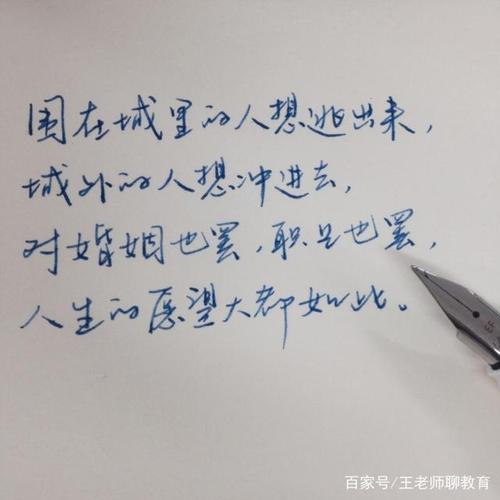 围在城里的人想逃出来，
城外的人想冲进去，
对婚姻也罢，职业也罢，
人生的愿望大都如此。
百家号/王老师聊教育